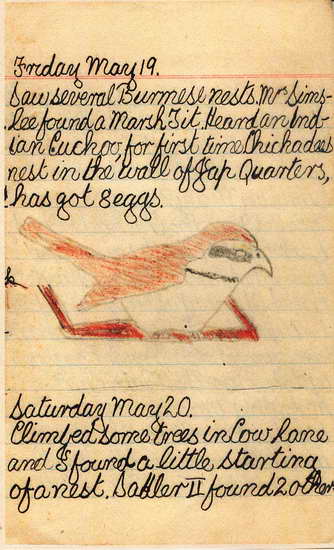 Friday May 19.
Saw several Burmese nests. Mr Sims-
lee found a Marsh Tit. Heard an Ind-
ian Cuchoo, for first time Chickadees
nest in the wall of Jap Quarters,
has got 8 eggs.
Saturday May 20.
Climbed some trees in Cow Lane
and I found a little starting
of a nest. Sadler II found 2 other